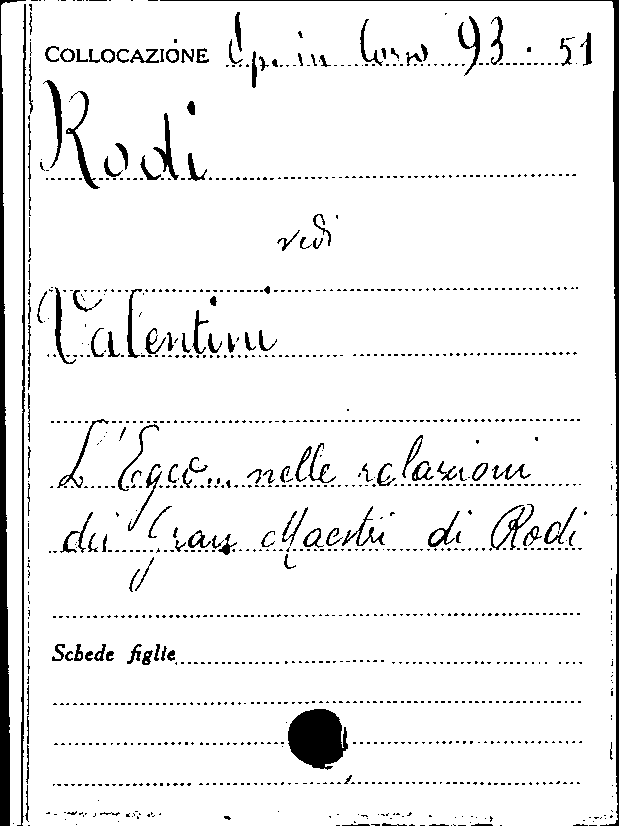 COLLOCAZIONE Op. in Corso 93. 51
Rodi
vedi
Valentini
L'Egeo... nelle relazioni
dei Gran Maestri di Rodi
Schede figlie